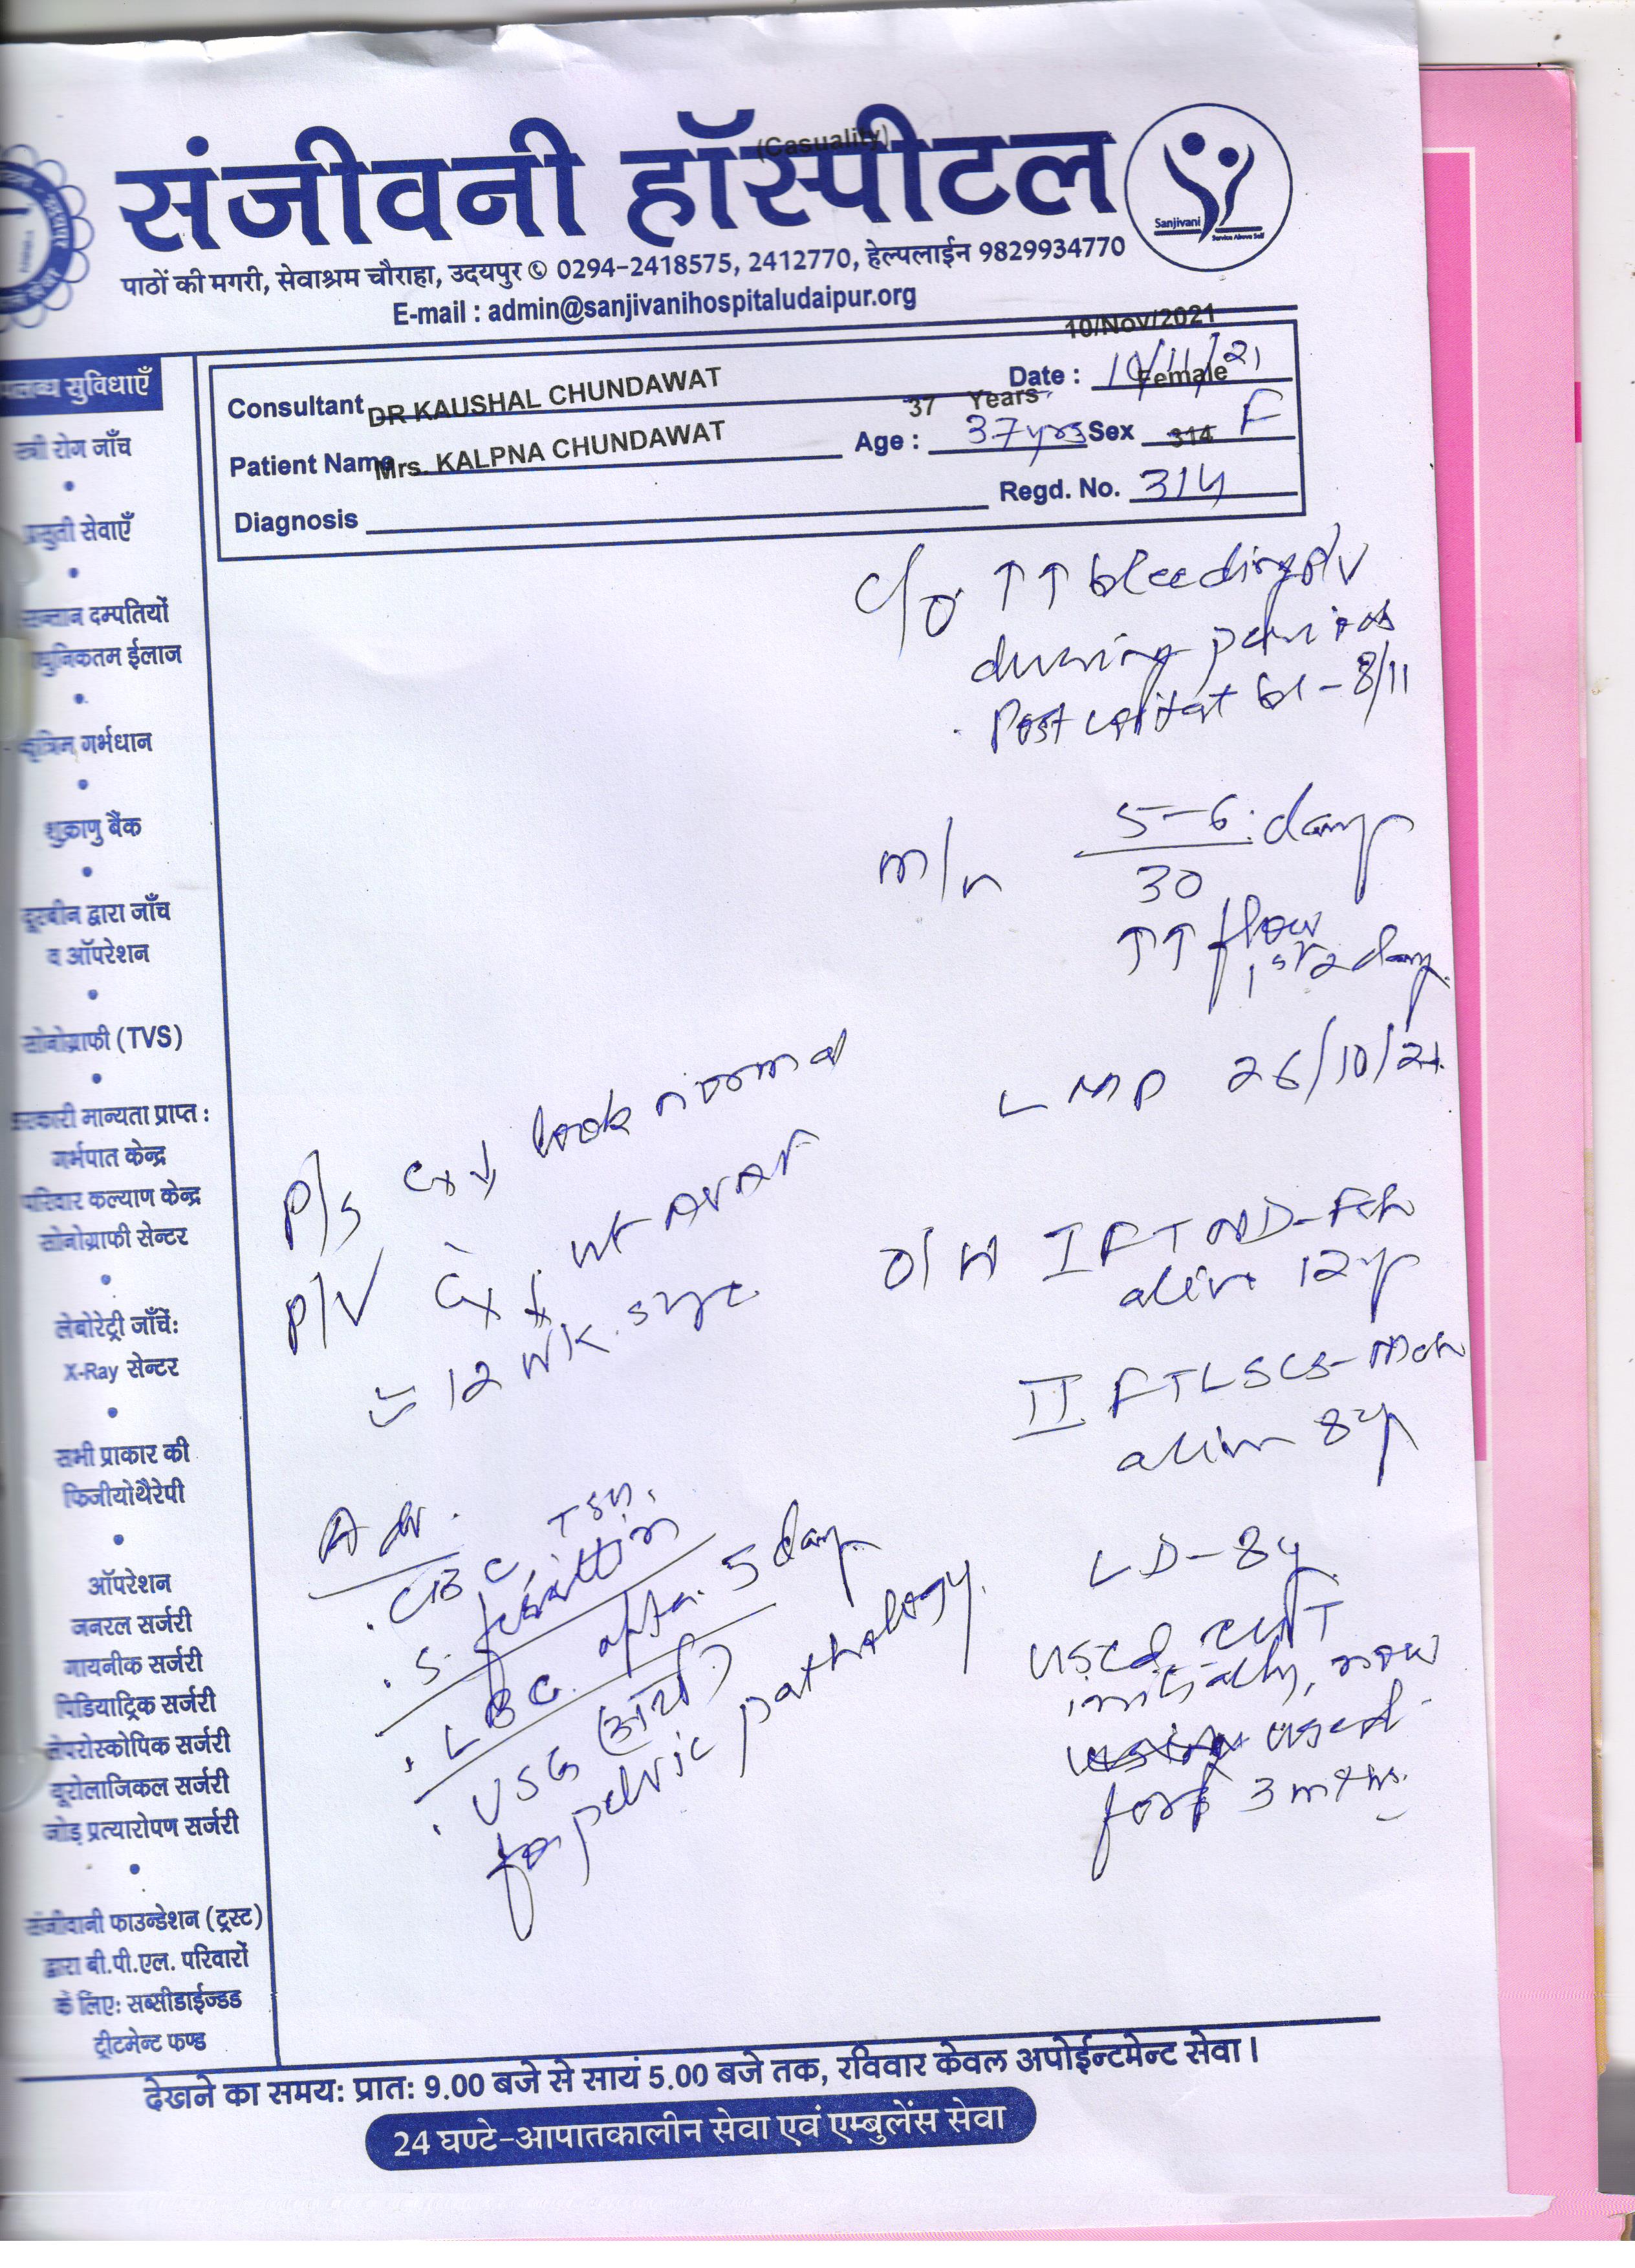 (Casuality)
संजीवनी हॉस्पीटल
Sanjivani
Service Above Self
पाठों की मगरी, सेवाश्रम चौराहा, उदयपुर 0294-2418575, 2412770, हेल्पलाईन 9829934770
E-mail : admin@sanjivanihospitaludaipur.org
10/Nov/2021
Consultant DR KAUSHAL CHUNDAWAT Date : 10/11/21
37 Years Female
Patient Name Mrs. KALPNA CHUNDAWAT Age : 37yrs Sex F
314
Diagnosis Regd. No. 314
सुविधाएँ
स्त्री रोग जाँच
प्रसुती सेवाएँ
दम्पतियों
ईलाज
गर्भधान
शुक्राणु बैंक
दूरबीन द्वारा जाँच
व ऑपरेशन
सोनोग्राफी (TVS)
मान्यता प्राप्त :
गर्भपात केन्द्र
परिवार कल्याण केन्द्र
सोनोग्राफी सेन्टर
लेबोरेट्री जाँचें:
X-Ray सेन्टर
सभी प्राकार की
फिजीयोथैरेपी
ऑपरेशन
जनरल सर्जरी
गायनीक सर्जरी
पिडियाट्रिक सर्जरी
लेपरोस्कोपिक सर्जरी
यूरोलाजिकल सर्जरी
जोड़ प्रत्यारोपण सर्जरी
संजीवानी फाउन्डेशन (ट्रस्ट)
द्वारा बी.पी.एल. परिवारों
के लिए: सब्सीडाईज्डड
ट्रीटमेन्ट फण्ड
c/o ↑↑ bleeding P/V
during periods
Post coital bl - 8/11
m/h 5-6 days
30
↑↑ flow
1st 2 days
LMP 26/10/21
P/S Cx look normal
P/V Cx ut AVAF
≈ 12 wk. size
O/H I FTND-Fch
alive 12y
II FTLSCS-Mch
alive 8y
LD-8y
used CuT
initially, now
used
for 3 mths.
Adv.
. CBC TSH.
. S. ferritin
. LBC after 5 days
. USG
for pelvic pathology.
देखने का समय: प्रातः 9.00 बजे से सायं 5.00 बजे तक, रविवार केवल अपोईन्टमेन्ट सेवा।
24 घण्टे-आपातकालीन सेवा एवं एम्बुलेंस सेवा